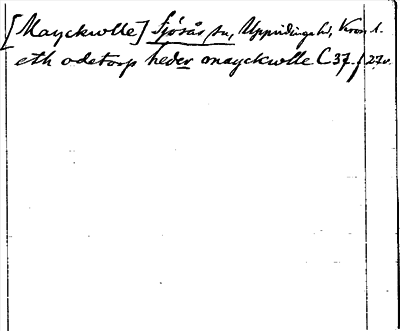 [Mayckwlle] Sjösås sn, Uppvidinge hd, Kron. l.
eth ödetorp heder mayckwlle C 37 f 27v.